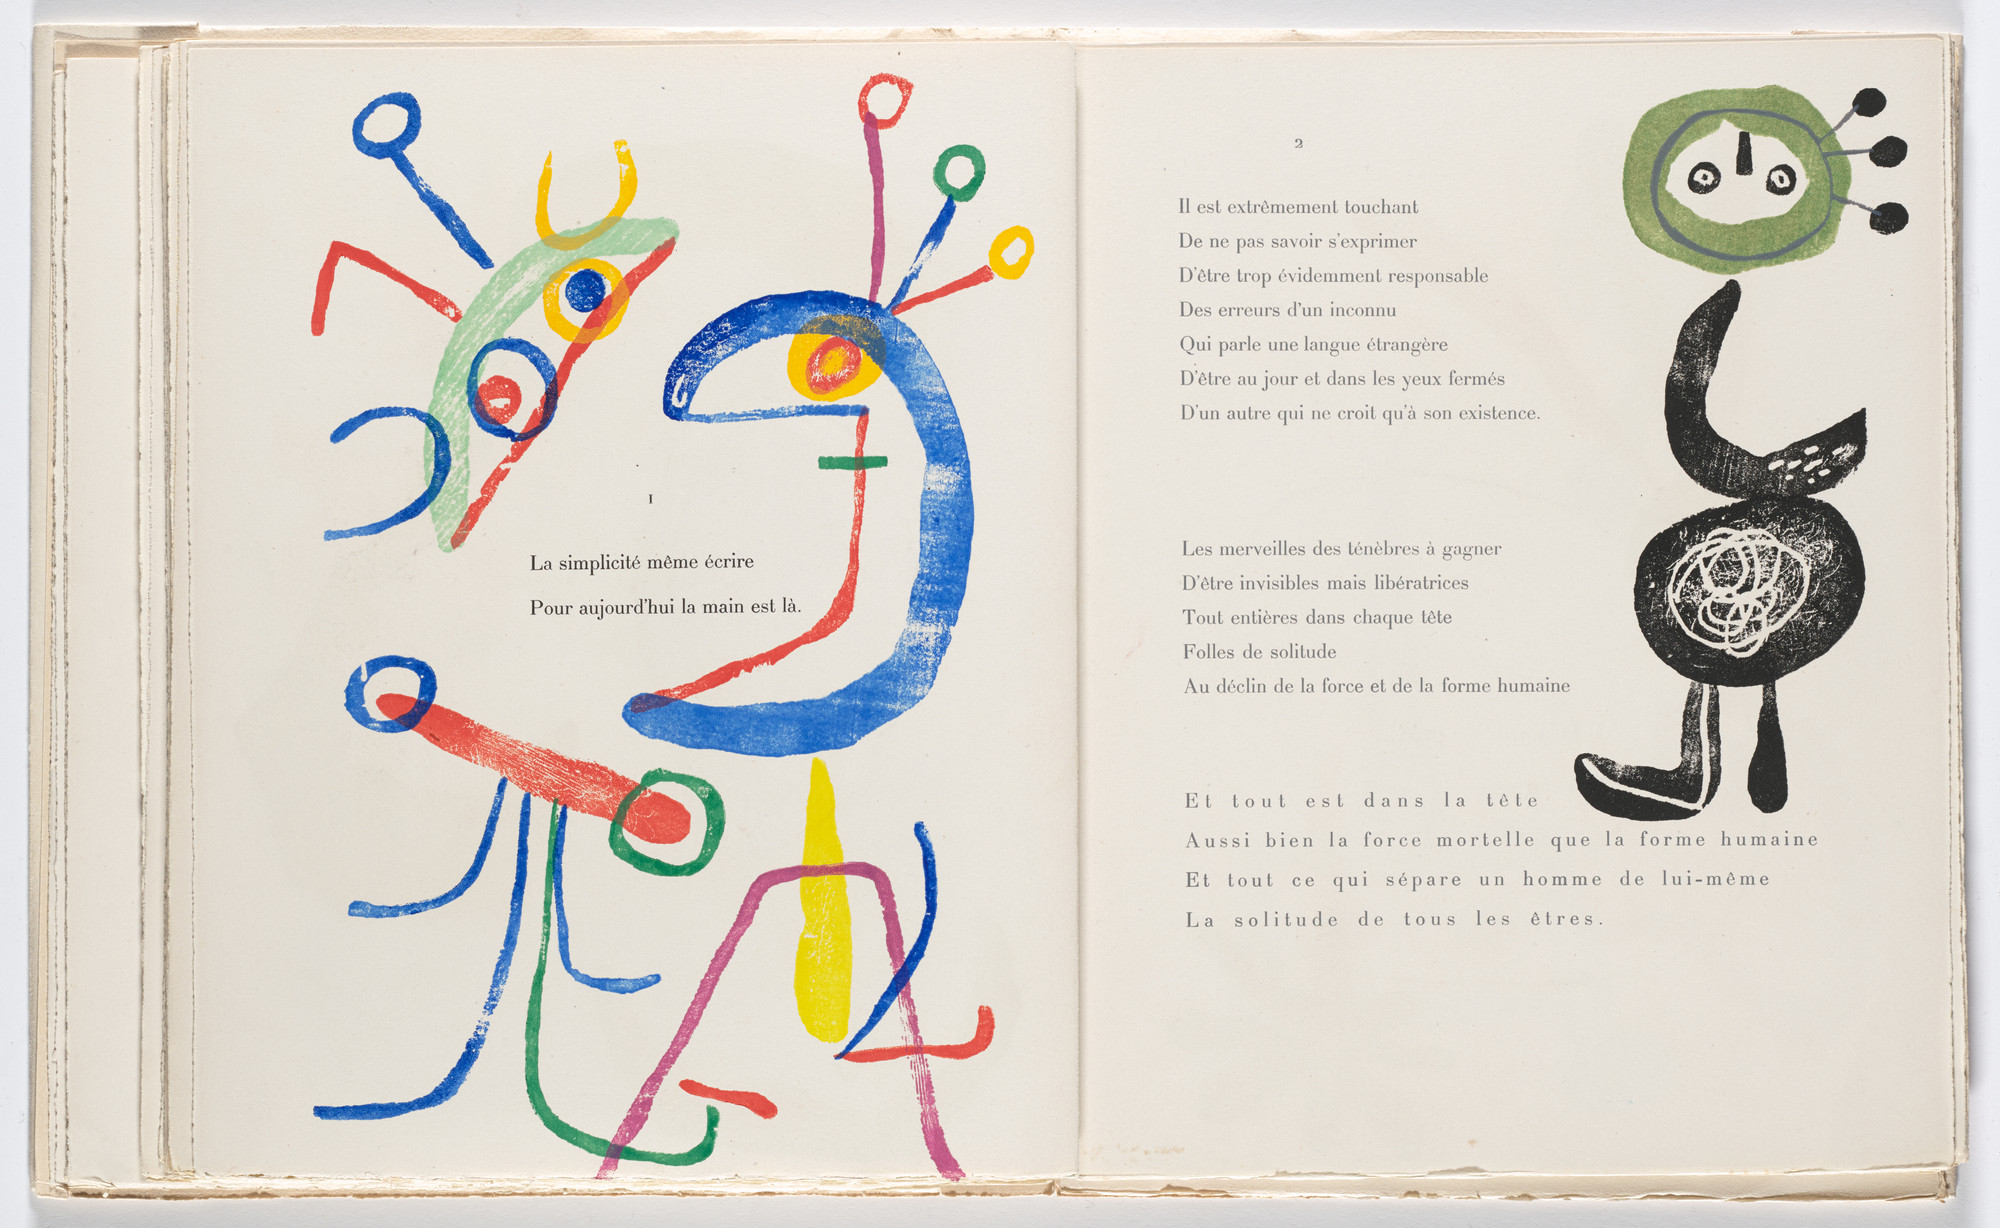 1
La simplicité même écrire
Pour aujourd'hui la main est là.
2
Il est extrêmement touchant
De ne pas savoir s'exprimer
D'être trop évidemment responsable
Des erreurs d'un inconnu
Qui parle une langue étrangère
D'être au jour et dans les yeux fermés
D'un autre qui ne croit qu'à son existence.
Les merveilles des ténèbres à gagner
D'être invisibles mais libératrices
Tout entières dans chaque tête
Folles de solitude
Au déclin de la force et de la forme humaine
Et tout est dans la tête
Aussi bien la force mortelle que la forme humaine
Et tout ce qui sépare un homme de lui-même
La solitude de tous les êtres.